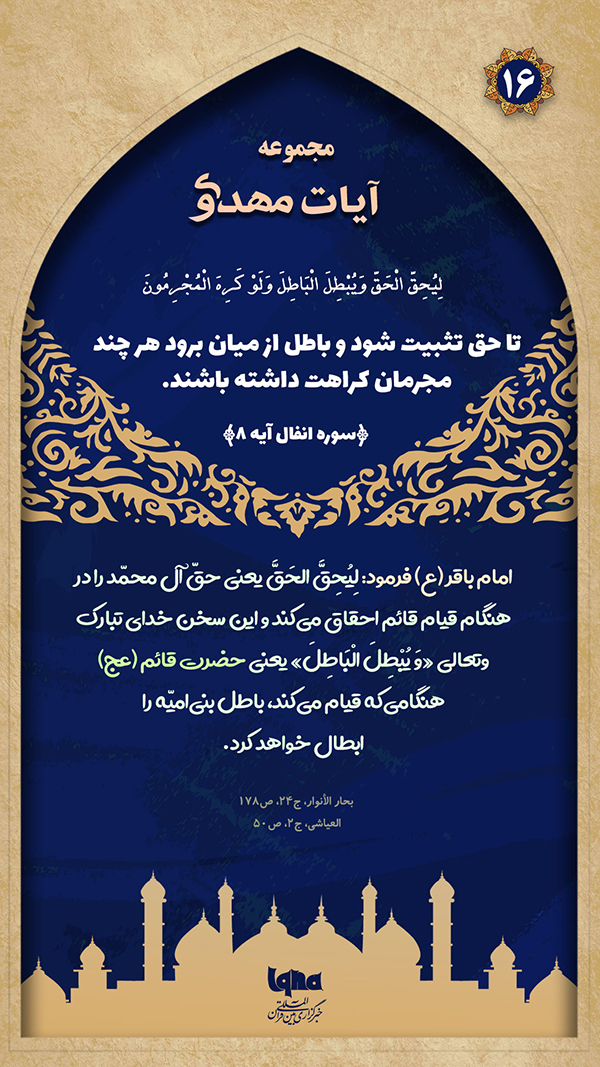 ۱۶
مجموعه
آیات مهدوی
لِيُحِقَّ الْحَقَّ وَيُبْطِلَ الْبَاطِلَ وَلَوْ كَرِهَ الْمُجْرِمُونَ
تا حق تثبیت شود و باطل از میان برود هر چند
مجرمان کراهت داشته باشند.
﴿سوره انفال آیه ۸﴾
امام باقر (ع) فرمود: لِيُحِقَّ الحَقَّ یعنی حقّ آل محمّد را در
هنگام قیام قائم احقاق می‌کند و این سخن خدای تبارک
وتعالی «وَ يُبْطِلَ الْبَاطِلَ» یعنی حضرت قائم (عج)
هنگامی‌که قیام می‌کند، باطل بنی‌امیّه را
ابطال خواهد کرد.
بحار الأنوار، ج۲۴، ص۱۷۸
العیاشی، ج۲، ص۵۰
iqna
خبرگزاری بین المللی قرآن